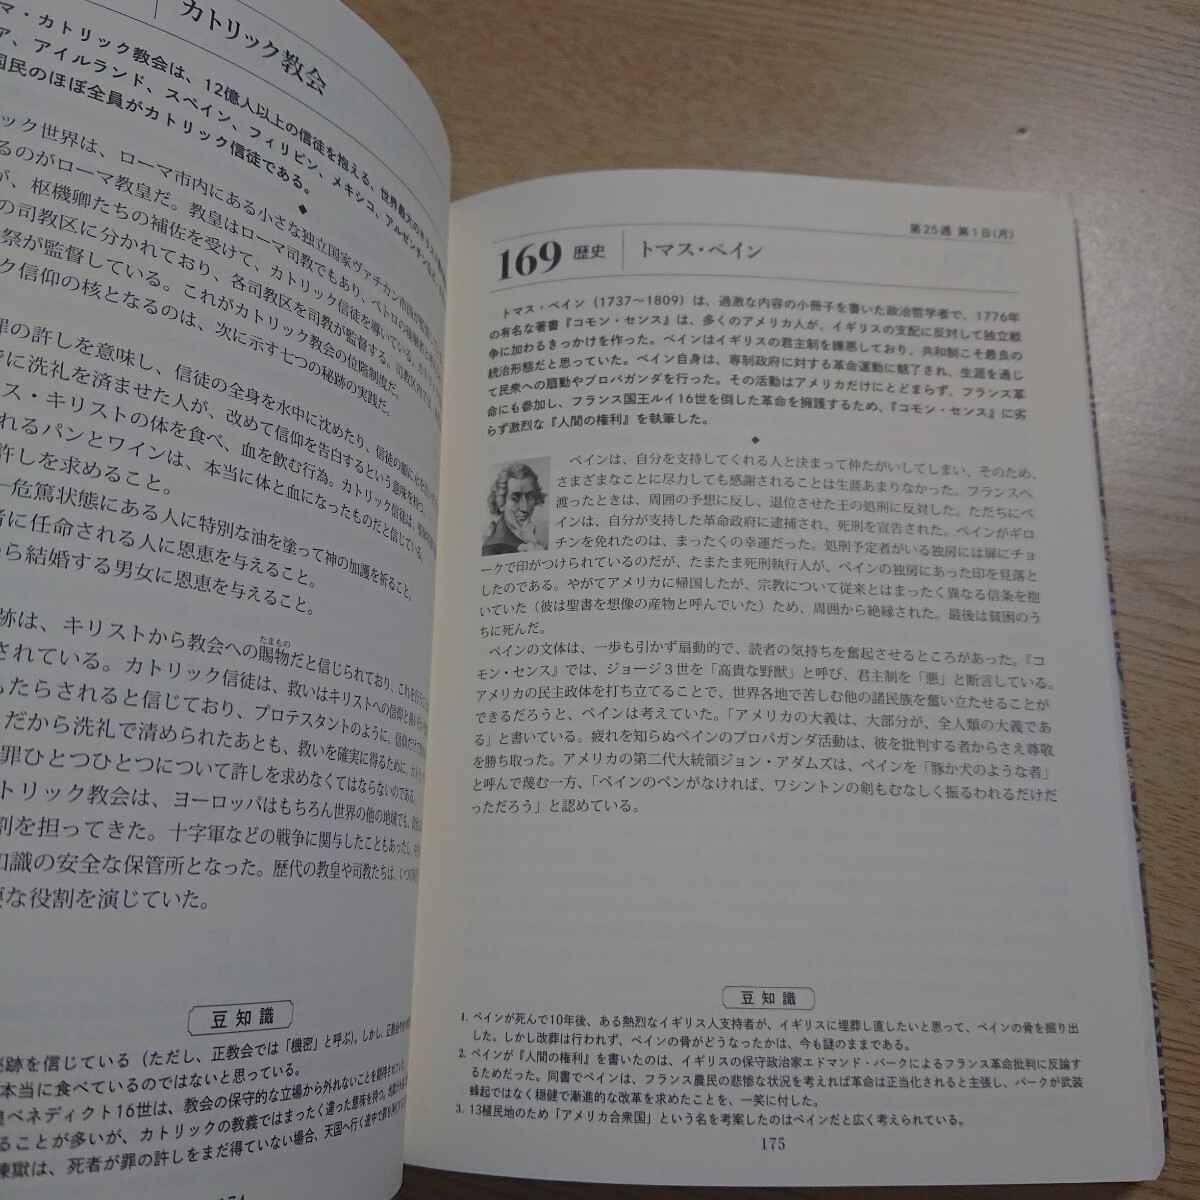 カトリック教会
マ・カトリック教会は、12億人以上の信徒を抱える、世界最大のキリスト
ア、アイルランド、スペイン、フィリピン、メキシコ、アルゼンチンなど、
国民のほぼ全員がカトリック信徒である。
◆
ック世界は、ローマ市内にある小さな独立国家ヴァチカン市国が
るのがローマ教皇だ。教皇はローマ司教でもあり、ペトロの後継者と
が、枢機卿たちの補佐を受けて、カトリック信徒を導いている。
の司教区に分かれており、各司教区を司教が監督する。司教区内では、
祭が監督している。これがカトリック教会の位階制度だ。
ク信仰の核となるのは、次に示す七つの秘跡の実践だ。
罪の許しを意味し、信徒の全身を水中に沈めたり、信徒の額に水を
でに洗礼を済ませた人が、改めて信仰を告白するという意味を持つ。
ス・キリストの体を食べ、血を飲む行為。カトリック信徒は、
れるパンとワインは、本当に体と血になったものだと信じている。
許しを求めること。
―危篤状態にある人に特別な油を塗って神の加護を祈ること。
者に任命される人に恩恵を与えること。
ら結婚する男女に恩恵を与えること。
跡は、キリストから教会への賜物だと信じられており、これを
たまもの
されている。カトリック信徒は、救いはキリストへの信仰と
もたらされると信じており、プロテスタントのように、信仰だけで
だから洗礼で清められたあとも、救いを確実に得るために、
罪ひとつひとつについて許しを求めなくてはならないのである。
トリック教会は、ヨーロッパはもちろん世界の他の地域でも、
割を担ってきた。十字軍などの戦争に関与したこともあったし、
知識の安全な保管所となった。歴代の教皇や司教たちは、いつの
要な役割を演じていた。
豆知識
秘跡を信じている（ただし、正教会では「機密」と呼ぶ）。しかし、正教会
本当に食べているのではないと思っている。
皇ベネディクト16世は、教会の保守的な立場から外れないことを期待されていた。
ることが多いが、カトリックの教義ではまったく違った意味を持つ。
煉獄は、死者が罪の許しをまだ得ていない場合、天国へ行く途中で罪を
第25週 第1日(月)
169 歴史 トマス・ペイン
トマス・ペイン（1737～1809）は、過激な内容の小冊子を書いた政治哲学者で、1776年
の有名な著書『コモン・センス』は、多くのアメリカ人が、イギリスの支配に反対して独立戦
争に加わるきっかけを作った。ペインはイギリスの君主制を嫌悪しており、共和制こそ最良の
統治形態だと思っていた。ペイン自身は、専制政府に対する革命運動に魅了され、生涯を通じ
て民衆への扇動やプロパガンダを行った。その活動はアメリカだけにとどまらず、フランス革
命にも参加し、フランス国王ルイ16世を倒した革命を擁護するため、『コモン・センス』に劣
らず激烈な『人間の権利』を執筆した。
◆
ペインは、自分を支持してくれる人と決まって仲たがいしてしまい、そのため、
さまざまなことに尽力しても感謝されることは生涯あまりなかった。フランスへ
渡ったときは、周囲の予想に反し、退位させた王の処刑に反対した。ただちにペ
インは、自分が支持した革命政府に逮捕され、死刑を宣告された。ペインがギロ
チンを免れたのは、まったくの幸運だった。処刑予定者がいる独房には扉にチョ
ークで印がつけられているのだが、たまたま死刑執行人が、ペインの独房にあった印を見落と
したのである。やがてアメリカに帰国したが、宗教について従来とはまったく異なる信条を抱
いていた（彼は聖書を想像の産物と呼んでいた）ため、周囲から絶縁された。最後は貧困のう
ちに死んだ。
ペインの文体は、一歩も引かず扇動的で、読者の気持ちを奮起させるところがあった。『コ
モン・センス』では、ジョージ３世を「高貴な野獣」と呼び、君主制を「悪」と断言している。
アメリカの民主政体を打ち立てることで、世界各地で苦しむ他の諸民族を奮い立たせることが
できるだろうと、ペインは考えていた。「アメリカの大義は、大部分が、全人類の大義であ
る」と書いている。疲れを知らぬペインのプロパガンダ活動は、彼を批判する者からさえ尊敬
を勝ち取った。アメリカの第二代大統領ジョン・アダムズは、ペインを「豚か犬のような者」
と呼んで蔑む一方、「ペインのペンがなければ、ワシントンの剣もむなしく振るわれるだけだ
っただろう」と認めている。
豆知識
1. ペインが死んで10年後、ある熱烈なイギリス人支持者が、イギリスに埋葬し直したいと思って、ペインの骨を掘り出
した。しかし改葬は行われず、ペインの骨がどうなったかは、今も謎のままである。
2. ペインが『人間の権利』を書いたのは、イギリスの保守政治家エドマンド・バークによるフランス革命批判に反論す
るためだった。同書でペインは、フランス農民の悲惨な状況を考えれば革命は正当化されると主張し、バークが武装
蜂起ではなく穏健で漸進的な改革を求めたことを、一笑に付した。
3. 13植民地のため「アメリカ合衆国」という名を考案したのはペインだと広く考えられている。
175